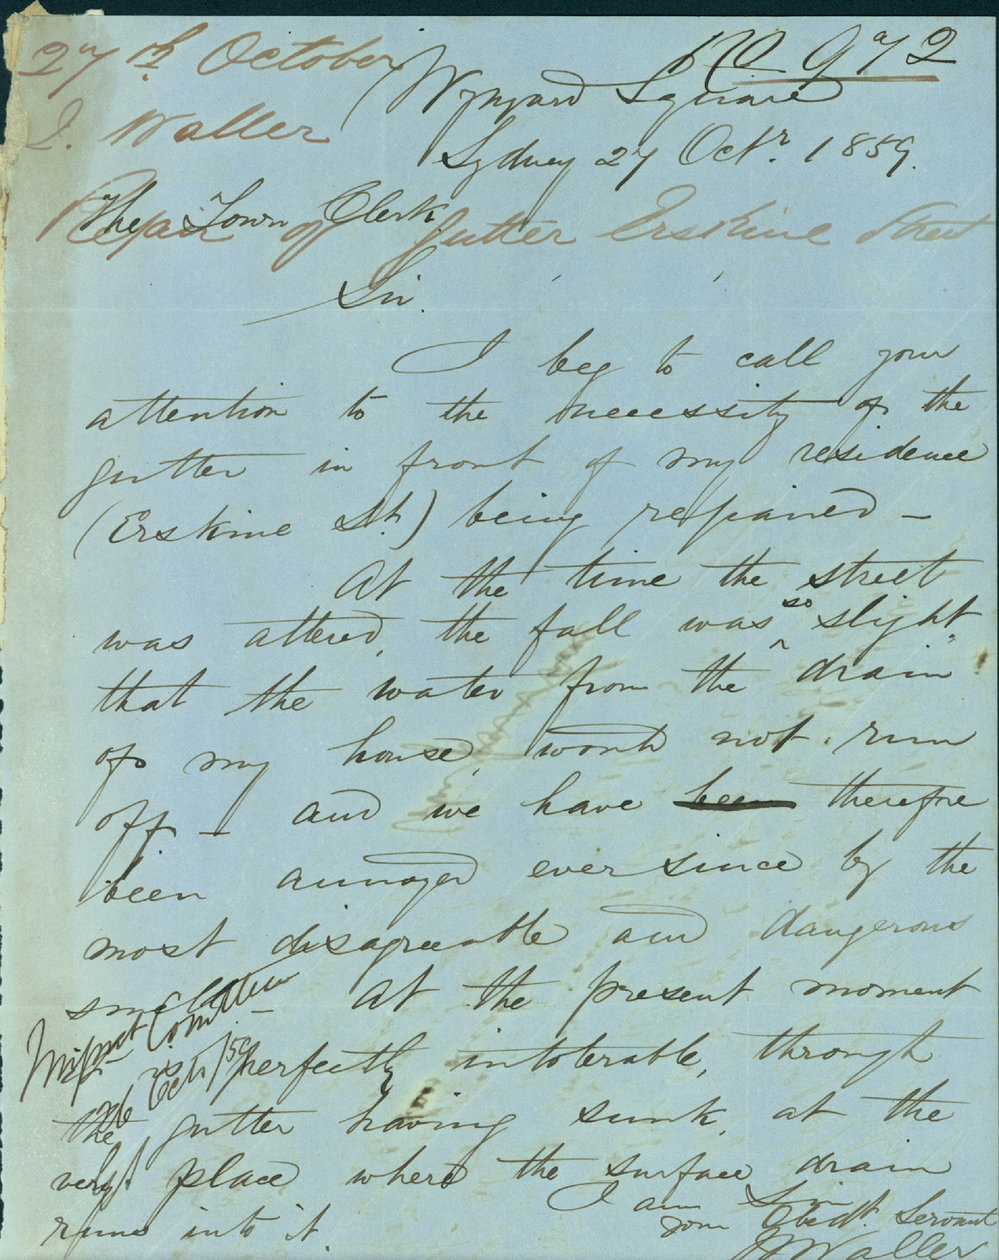 27th October
No 972
Wynyard Square
J. Waller
Sydney 27 Octr. 1859.
The Town Clerk
Repair of Gutter Erskine Street
Sir.
I beg to call your
attention to the necessity of the
gutter in front of my residence
(Erskine St.) being repaired –
At the time the street
was altered, the fall was so slight,
that the water from the drain
of my house, would not run
off – and we have been therefore
been annoyed ever since by the
most disagreeable and dangerous
smells – At the present moment
Improvt Committee
perfectly intolerable, through
Oct/59
the gutter having sunk, at the
very place where the surface drain
runs into it.
I am Sir
your Obedt. Servant
J Waller